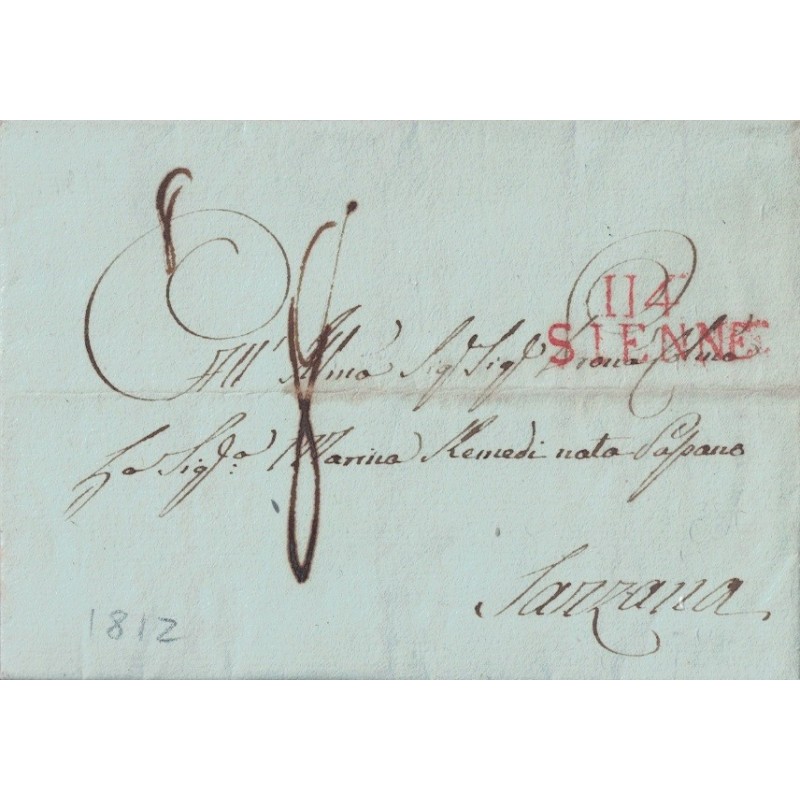 114
SIENNE
All' Illma Sigª Sigª Prona Colma
La Sigª Marina Remedi nata
Sarzana
1812